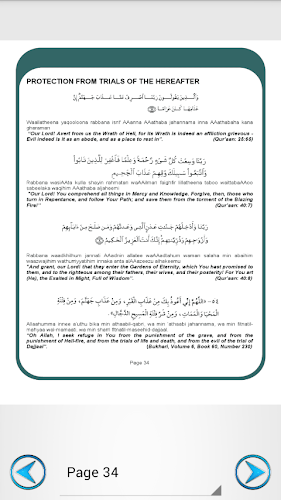 PROTECTION FROM TRIALS OF THE HEREAFTER
وَالَّذِينَ يَقُولُونَ رَبَّنَا اصْرِفْ عَنَّا عَذَابَ جَهَنَّمَ إِنَّ
عَذَابَهَا كَانَ غَرَامًا
Waallatheena yaqooloona rabbana isrif AAanna AAathaba jahannama inna AAathabaha kana
gharaman
"Our Lord! Avert from us the Wrath of Hell, for its Wrath is indeed an affliction grievous -
Evil indeed is it as an abode, and as a place to rest in".
(Qur'aan: 25:65)
رَبَّنَا وَسِعْتَ كُلَّ شَيْءٍ رَّحْمَةً وَعِلْمًا فَاغْفِرْ لِلَّذِينَ تَابُوا
وَاتَّبَعُوا سَبِيلَكَ وَقِهِمْ عَذَابَ الْجَحِيمِ
Rabbana wasiAAta kulla shayin rahmatan waAAilman faighfir lillatheena taboo waittabaAAoo
sabeelaka waqihim AAathaba aljaheemi
"Our Lord! You comprehend all things in Mercy and Knowledge. Forgive, then, those who
turn in Repentance, and follow Your Path; and save them from the torment of the Blazing
Fire!"
(Qur'aan: 40:7)
رَبَّنَا وَأَدْخِلْهُمْ جَنَّاتِ عَدْنٍ الَّتِي وَعَدتَّهُمْ وَمَن صَلَحَ مِنْ آبَائِهِمْ
وَأَزْوَاجِهِمْ وَذُرِّيَّاتِهِمْ إِنَّكَ أَنتَ الْعَزِيزُ الْحَكِيمُ
Rabbana waadkhilhum jannati AAadnin allatee waAAadtahum waman salaha min abaihim
waazwajihim wathurriyyatihim innaka anta alAAazeezu alhakeemu
"And grant, our Lord! that they enter the Gardens of Eternity, which You hast promised to
them, and to the righteous among their fathers, their wives, and their posterity! For You art
(He), the Exalted in Might, Full of Wisdom".
(Qur'aan: 40:8)
٥١- «اللَّهُمَّ إِنِّي أَعُوذُ بِكَ مِنْ عَذَابِ الْقَبْرِ، وَمِنْ عَذَابِ جَهَنَّمَ، وَمِنْ فِتْنَةِ
الْمَحْيَا وَالْمَمَاتِ، وَمِنْ شَرِّ فِتْنَةِ الْمَسِيحِ الدَّجَّالِ».
"Oh Allah, I seek refuge in You from the punishment of the grave, and from the
punishment of Hell-fire, and from the trials of life and death, and from the evil of the trial of
Dajjaal".
(Bukhari, Volume 6, Book 60, Number 230)
Page 34
Page 34